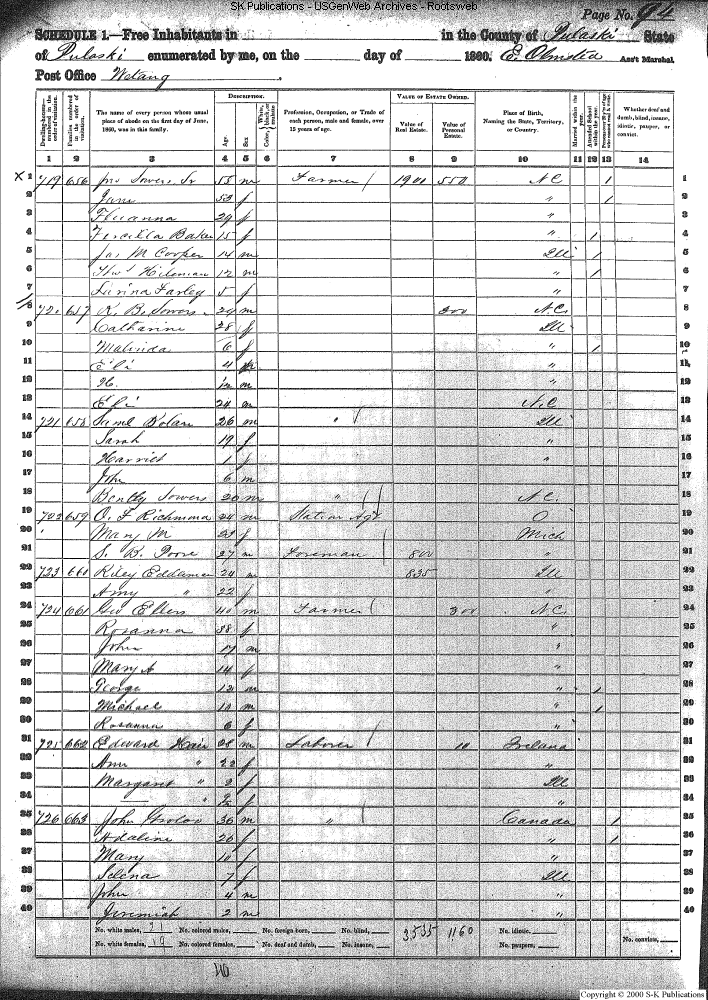 SK Publications - USGenWeb Archives - Rootsweb
Page No. 94
SCHEDULE 1.—Free Inhabitants in in the County of Pulaski State
of Pulaski enumerated by me, on the day of 1860. E. Olmsted Ass't Marshal
Post Office Wetang
DESCRIPTION. VALUE OF ESTATE OWNED.
Dwelling-houses— numbered in the order of visitation. Families numbered in the order of visitation. The name of every person whose usual place of abode on the first day of June, 1860, was in this family. Age. Sex. Color, White, black, or mulatto. Profession, Occupation, or Trade of each person, male and female, over 15 years of age. Value of Real Estate. Value of Personal Estate. Place of Birth, Naming the State, Territory, or Country. Married within the year. Attended School within the year. Whether deaf and dumb, blind, insane, idiotic, pauper, or convict.
1 2 3 4 5 6 7 8 9 10 11 12 13 14
X 1 719 656 Jno Sowers, Sr 55 m Farmer / 1900 550 N C / 1
2 Jane 53 f " / 2
3 29 f " 3
4 Baker 15 f " / 4
5 Jas M Cooper 14 m Ill / 5
6 Thos Hileman 12 m " / 6
7 Lurina Farley 5 f " 7
8 720 657 K. B. Sowers 29 m 300 N.C. 8
9 Catharine 28 f Ill 9
10 Malinda 6 f " / 10
11 Eli 4 m " 11
12 H. m " 12
13 Eli 24 m N.C 13
14 721 658 Saml Bolan 26 m " Ill 14
15 Sarah 19 f " 15
16 Harriet 1 f " 16
17 John 6 m 17
18 Bently Sowers 20 m " N.C. 18
19 722 659 O. F. Richmond 24 m Station Agt O 19
20 Mary M 23 f Mich 20
21 S. B. Poore 27 m Foreman 800 " 21
22 723 660 Riley Eddleman 24 m 835 Ill 22
23 Amy " 22 f 23
24 724 661 Geo Ellers 40 m Farmer 300 N.C. 24
25 Rosanna 38 f " 25
26 John 17 m " 26
27 Mary A 14 f " 27
28 George 12 m " / 28
29 Michael 10 m " / 29
30 Rosanna 6 f " 30
31 725 662 Edward Hair m Laborer 10 Ireland 31
32 Ann " 22 f " 32
33 Margaret " 2 f Ill 33
34 — " f " 34
35 726 663 John 36 m " Canada / 35
36 Adaline 26 f " / 36
37 Mary 10 f " 37
38 Selena 7 f Ill 38
39 John 4 m " 39
40 Jeremiah 2 m " 40
No. white males, 21 No. colored males, No. foreign born, No. blind, 3535 1160 No. idiotic,
No. white females, 19 No. colored females, No. deaf and dumb, No. insane, No. paupers, No. convicts,
Copyright © 2000 S-K Publications